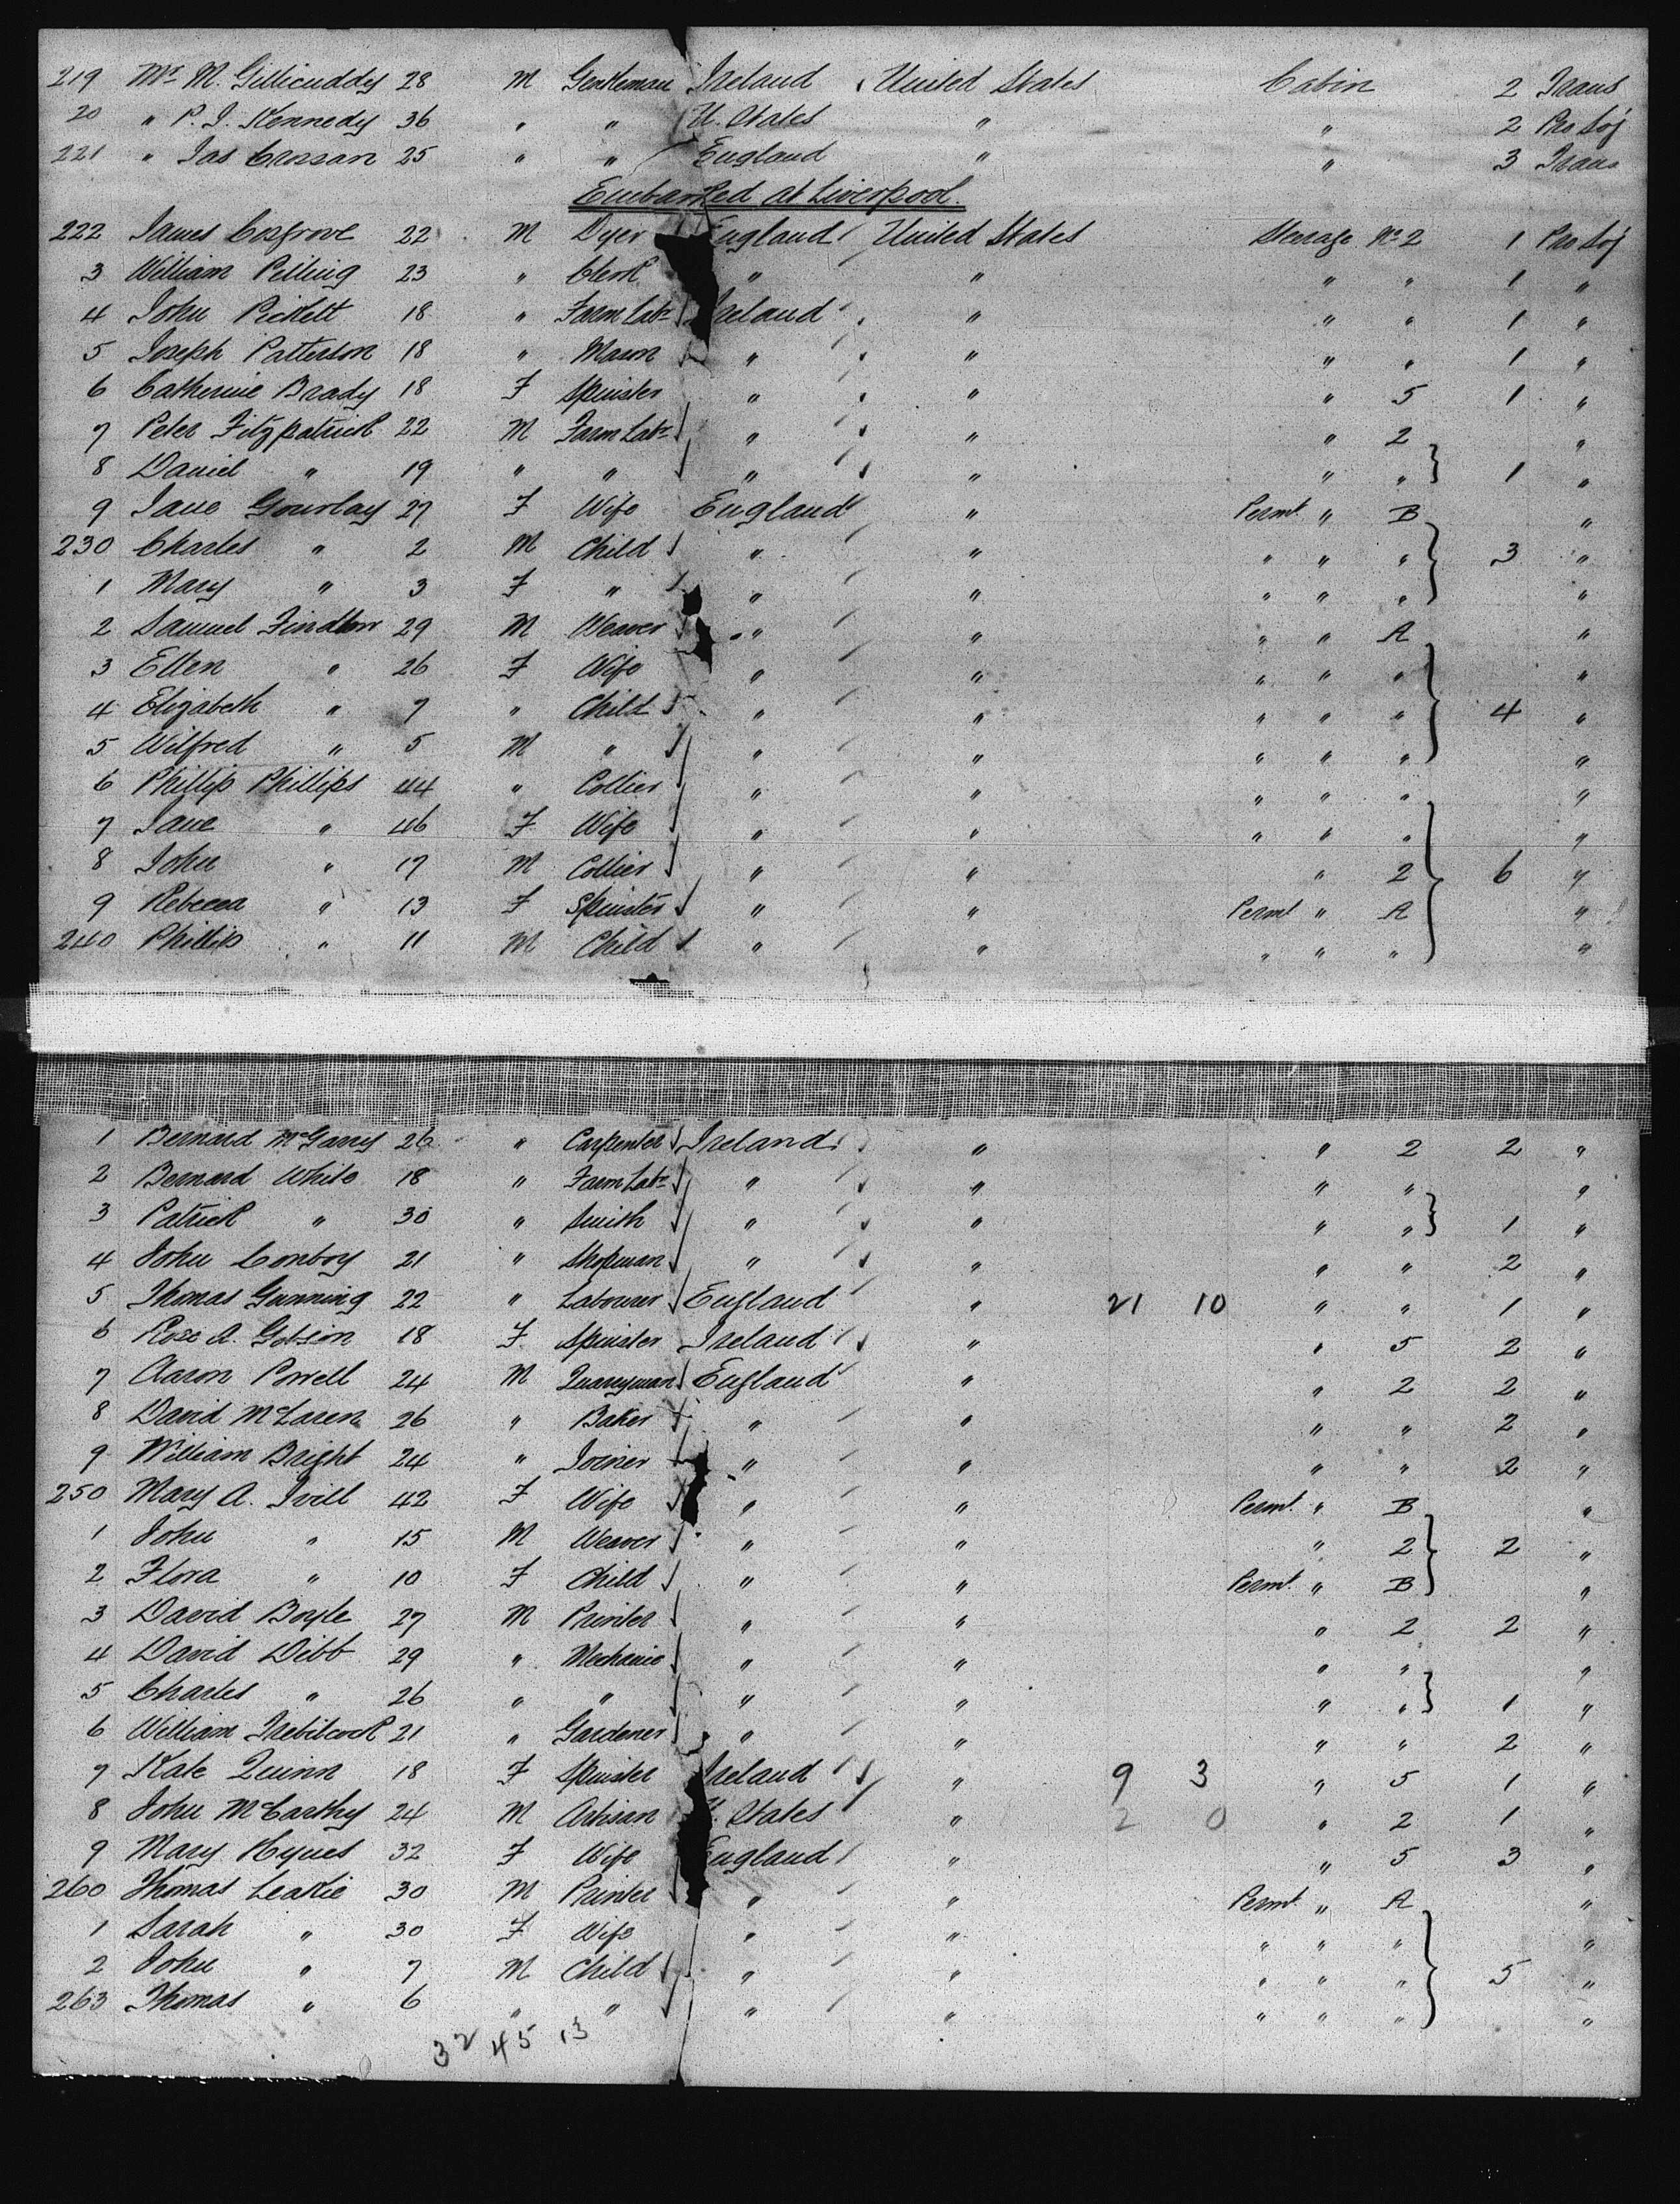 219 Mr M. Gillicuddy 28 M Gentleman Ireland United States Cabin 2 Trans
20 " P. J. Kennedy 36 " " U. States " " 2 Pro Soj
221 " Jas Crossan 25 " " England " " 3 Trans
Embarked at Liverpool.
222 James Cosgrove 22 M Dyer England United States Steerage No 2 1 Pro Soj
3 William Pilling 23 " Clerk " " " " 1 "
4 John Pickett 18 " Farm Labr Ireland " " " 1 "
5 Joseph Patterson 18 " Mason " " " " 1 "
6 Catherine Brady 18 F Spinster " " " 5 1 "
7 Peter Fitzpatrick 22 M Farm Labr " " " 2 "
8 Daniel " 19 " " " " " " 1 "
9 Jane Gourlay 27 F Wife England " Permt. " B "
230 Charles " 2 M Child " " " " " 3 "
1 Mary " 3 F " " " " " " "
2 Samuel Findlow 29 M Weaver " " " " A "
3 Ellen " 26 F Wife " " " " " "
4 Elizabeth " 7 " Child " " " " " 4 "
5 Wilfred " 5 M " " " " " " "
6 Phillip Phillips 44 " Collier " " " " " "
7 Jane " 46 F Wife " " " " " "
8 John " 17 M Collier " " " 2 6 "
9 Rebecca " 13 F Spinster " " Permt " A "
240 Phillip " 11 M Child " " " " " "
1 Bernard McGarry 26 " Carpenter Ireland " " 2 2 "
2 Bernard White 18 " Farm Labr " " " " "
3 Patrick " 30 " Smith " " " " 1 "
4 John Conboy 21 " Shopman " " " " 2 "
5 Thomas Gunning 22 " Labourer England " 21 10 " " 1 "
6 Rose A. Gibson 18 F Spinster Ireland " " 5 2 "
7 Aaron Powell 24 M Quarryman England " " 2 2 "
8 David McLaren 26 " Baker " " " " 2 "
9 William Bright 24 " Joiner " " " " 2 "
250 Mary A. Ivill 42 F Wife " " Permt. " B "
1 John " 15 M Weaver " " " 2 2 "
2 Flora " 10 F Child " " Permt. " B "
3 David Boyle 27 M Printer " " " 2 2 "
4 David Dibb 29 " Mechanic " " " " "
5 Charles " 26 " " " " " " 1 "
6 William Trebilcock 21 " Gardener " " " " 2 "
7 Kate Quinn 18 F Spinster Ireland " 9 3 " 5 1 "
8 John McCarthy 24 M Artisan U. States " 2 0 " 2 1 "
9 Mary Hynes 32 F Wife England " " 5 3 "
260 Thomas Leakie 30 M Printer " " Permt. " A "
1 Sarah " 30 F Wife " " " " " "
2 John " 7 M Child " " " " " 5 "
263 Thomas " 6 " " " " " " " "
32 45 13